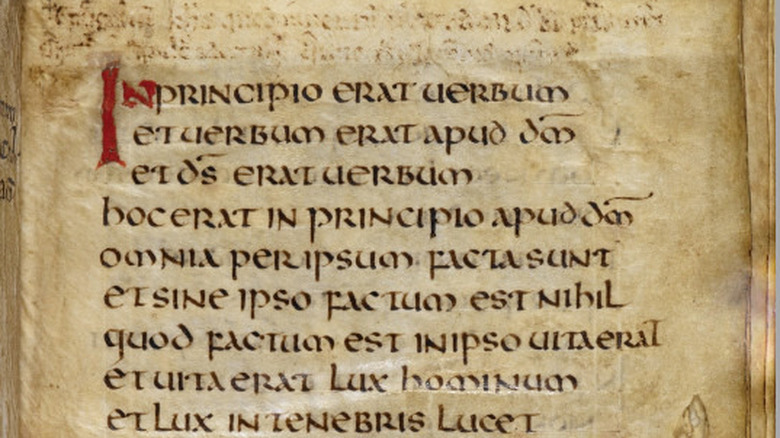 IN PRINCIPIO ERAT UERBUM
ET UERBUM ERAT APUD DM̅
ET DS̅ ERAT UERBUM
hOC ERAT IN PRINCIPIO APUD DM̅
OMNIA PER IPSUM FACTA SUNT
ET SINE IPSO FACTUM EST NIhIL
QUOD FACTUM EST IN IPSO UITA ERAT
ET UITA ERAT LUX hOMINUM
ET LUX IN TENEBRIS LUCET